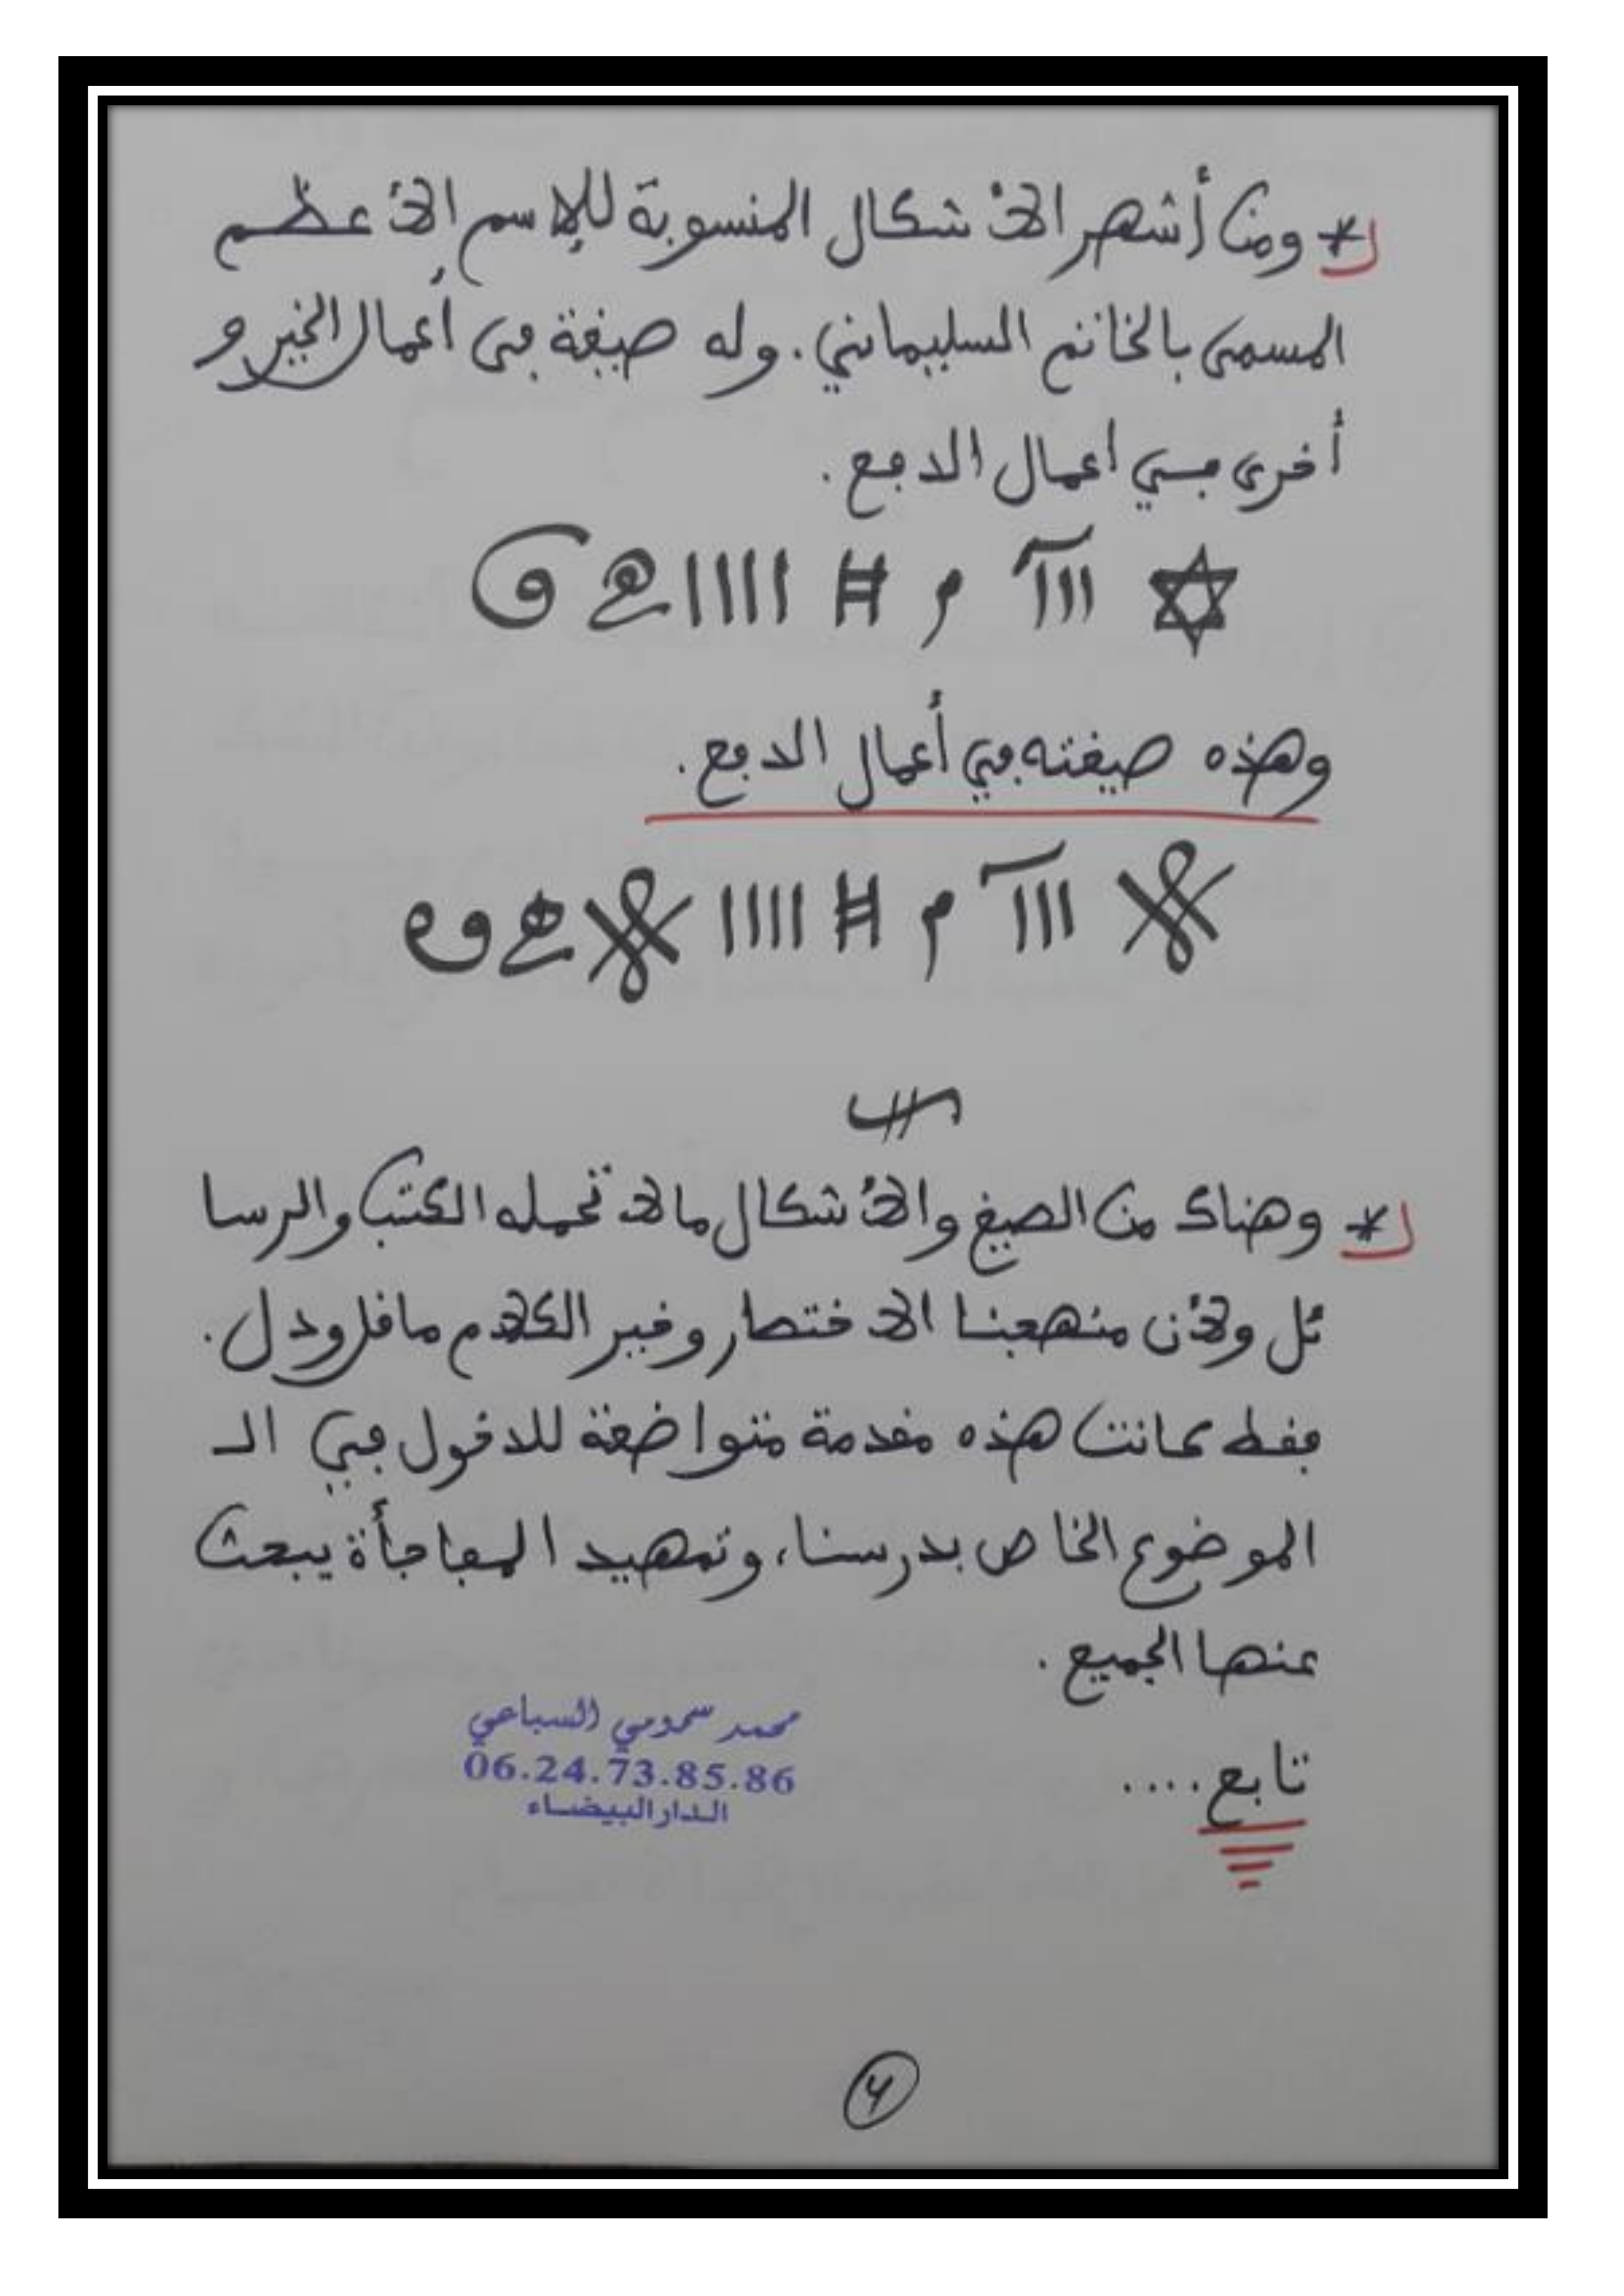 * ومن أشهر الأشكال المنسوبة للإسم الأعظم
المسمى بالخاتم السليماني. وله صيغة في أعمال الخير و
أخرى في أعمال الدفع.
✡ ااا م # اااا ھ و
وهذه صيغته في أعمال الدفع.
ااا م # اااا ھ و
* وهناك من الصيغ والأشكال مالا تحمله الكتب والرسا
ئل ولأن منهجنا الاختصار وخير الكلام ما قل ودل.
فقط كانت هذه مقدمة متواضعة للدخول في الـ
الموضوع الخاص بدرسنا، وتمهيد المفاجأة يبحث
عنها الجميع.
محمد سمومي السباعي
06.24.73.85.86
الدار البيضاء
تابع....